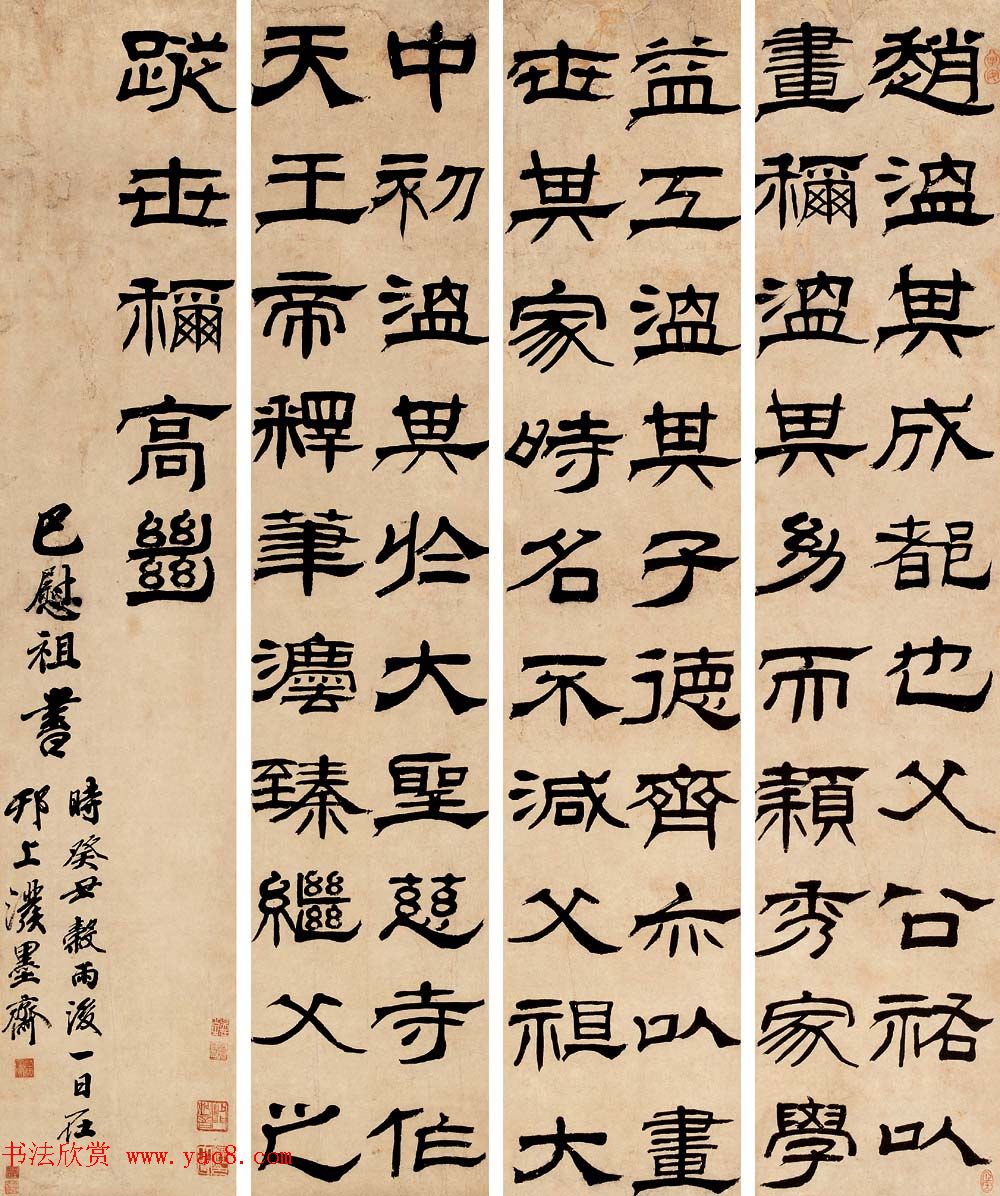 趙溫其成都也父公祐以
畫穪溫其幼而穎秀家學
益工溫其子德齊亦以畫
世其家時名不減父祖大
中初溫其於大聖慈寺作
天王帝釋筆灋臻繼父之
蹤世穪高絕
巴慰祖書
時癸丑穀雨後一日在
邗上潑墨齋
书法欣赏 www.yac8.com